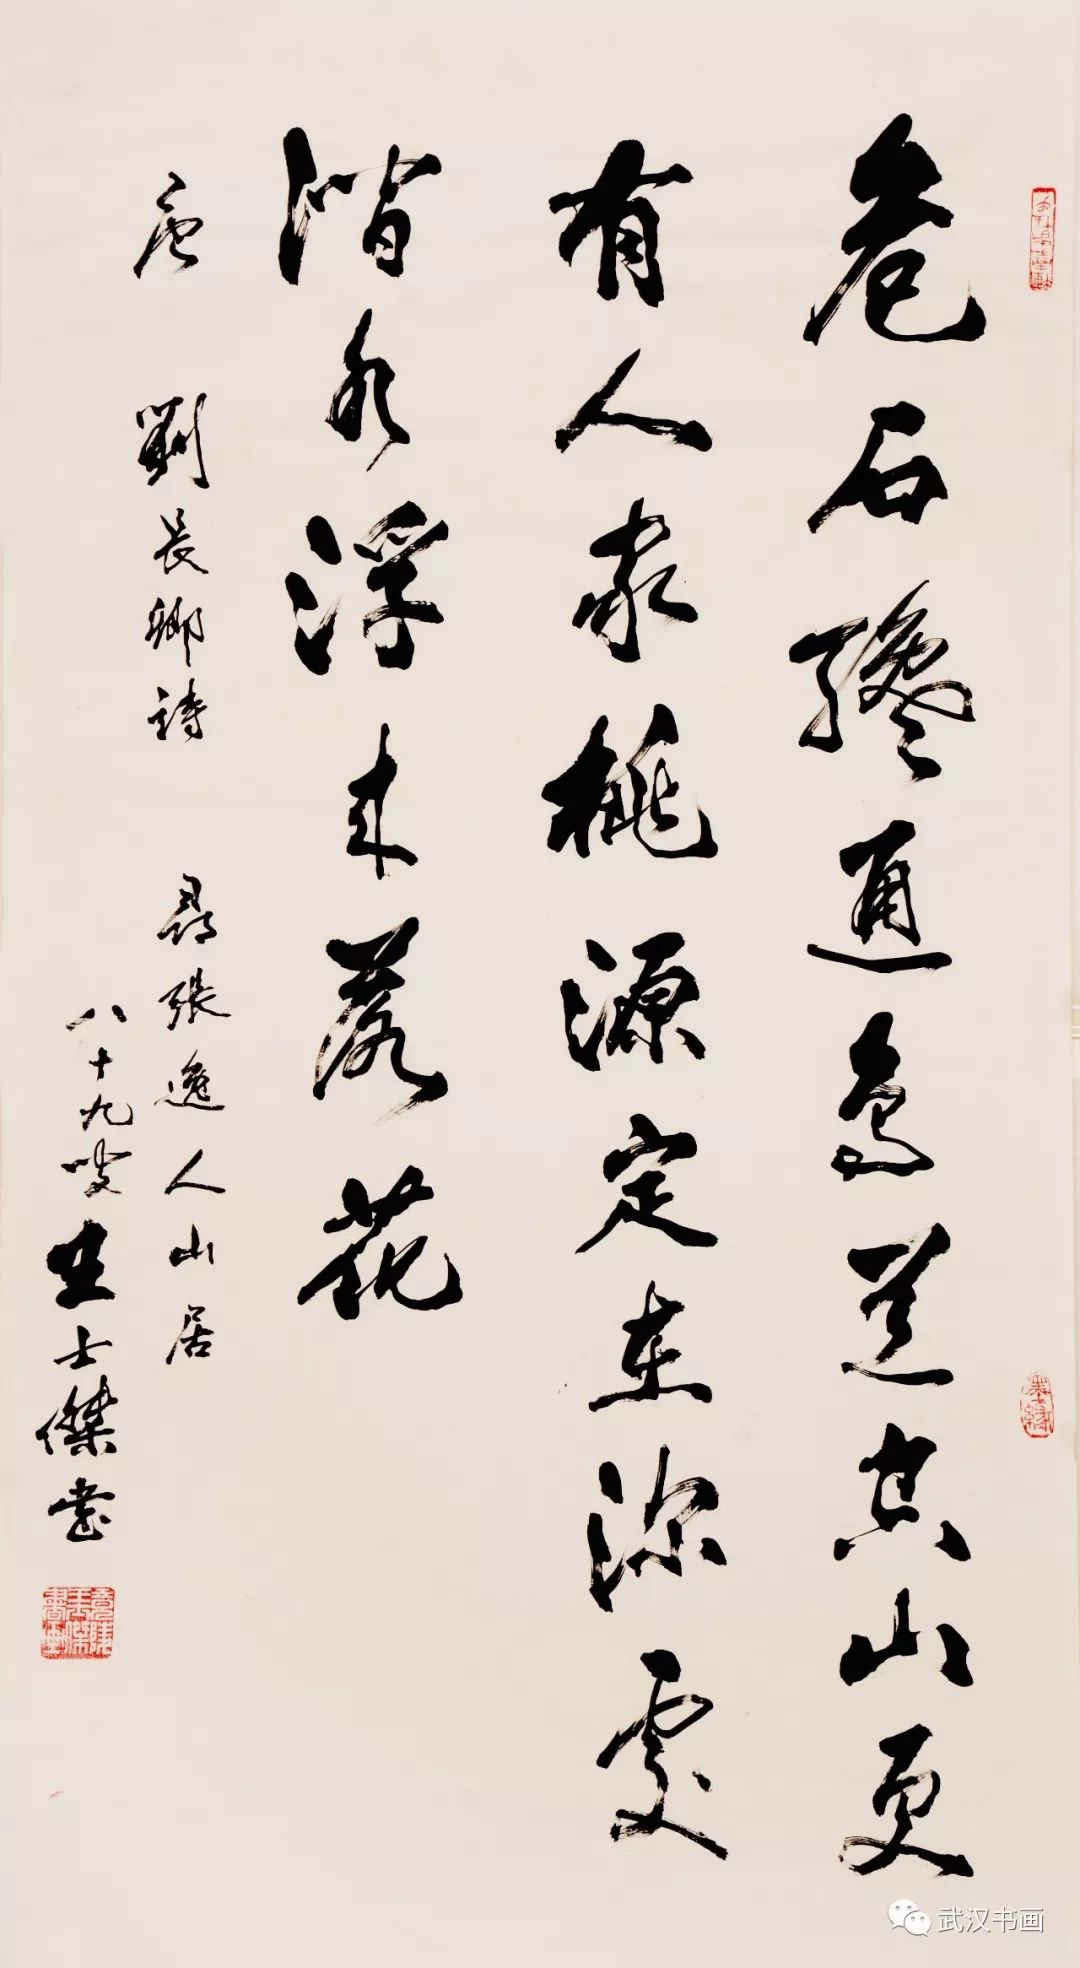 危石纔通鳥道空山更
有人家桃源定在深處
澗水浮來落花
唐 劉長卿詩 尋張逸人山居
八十九叟王士傑書
墨緣
武汉书画